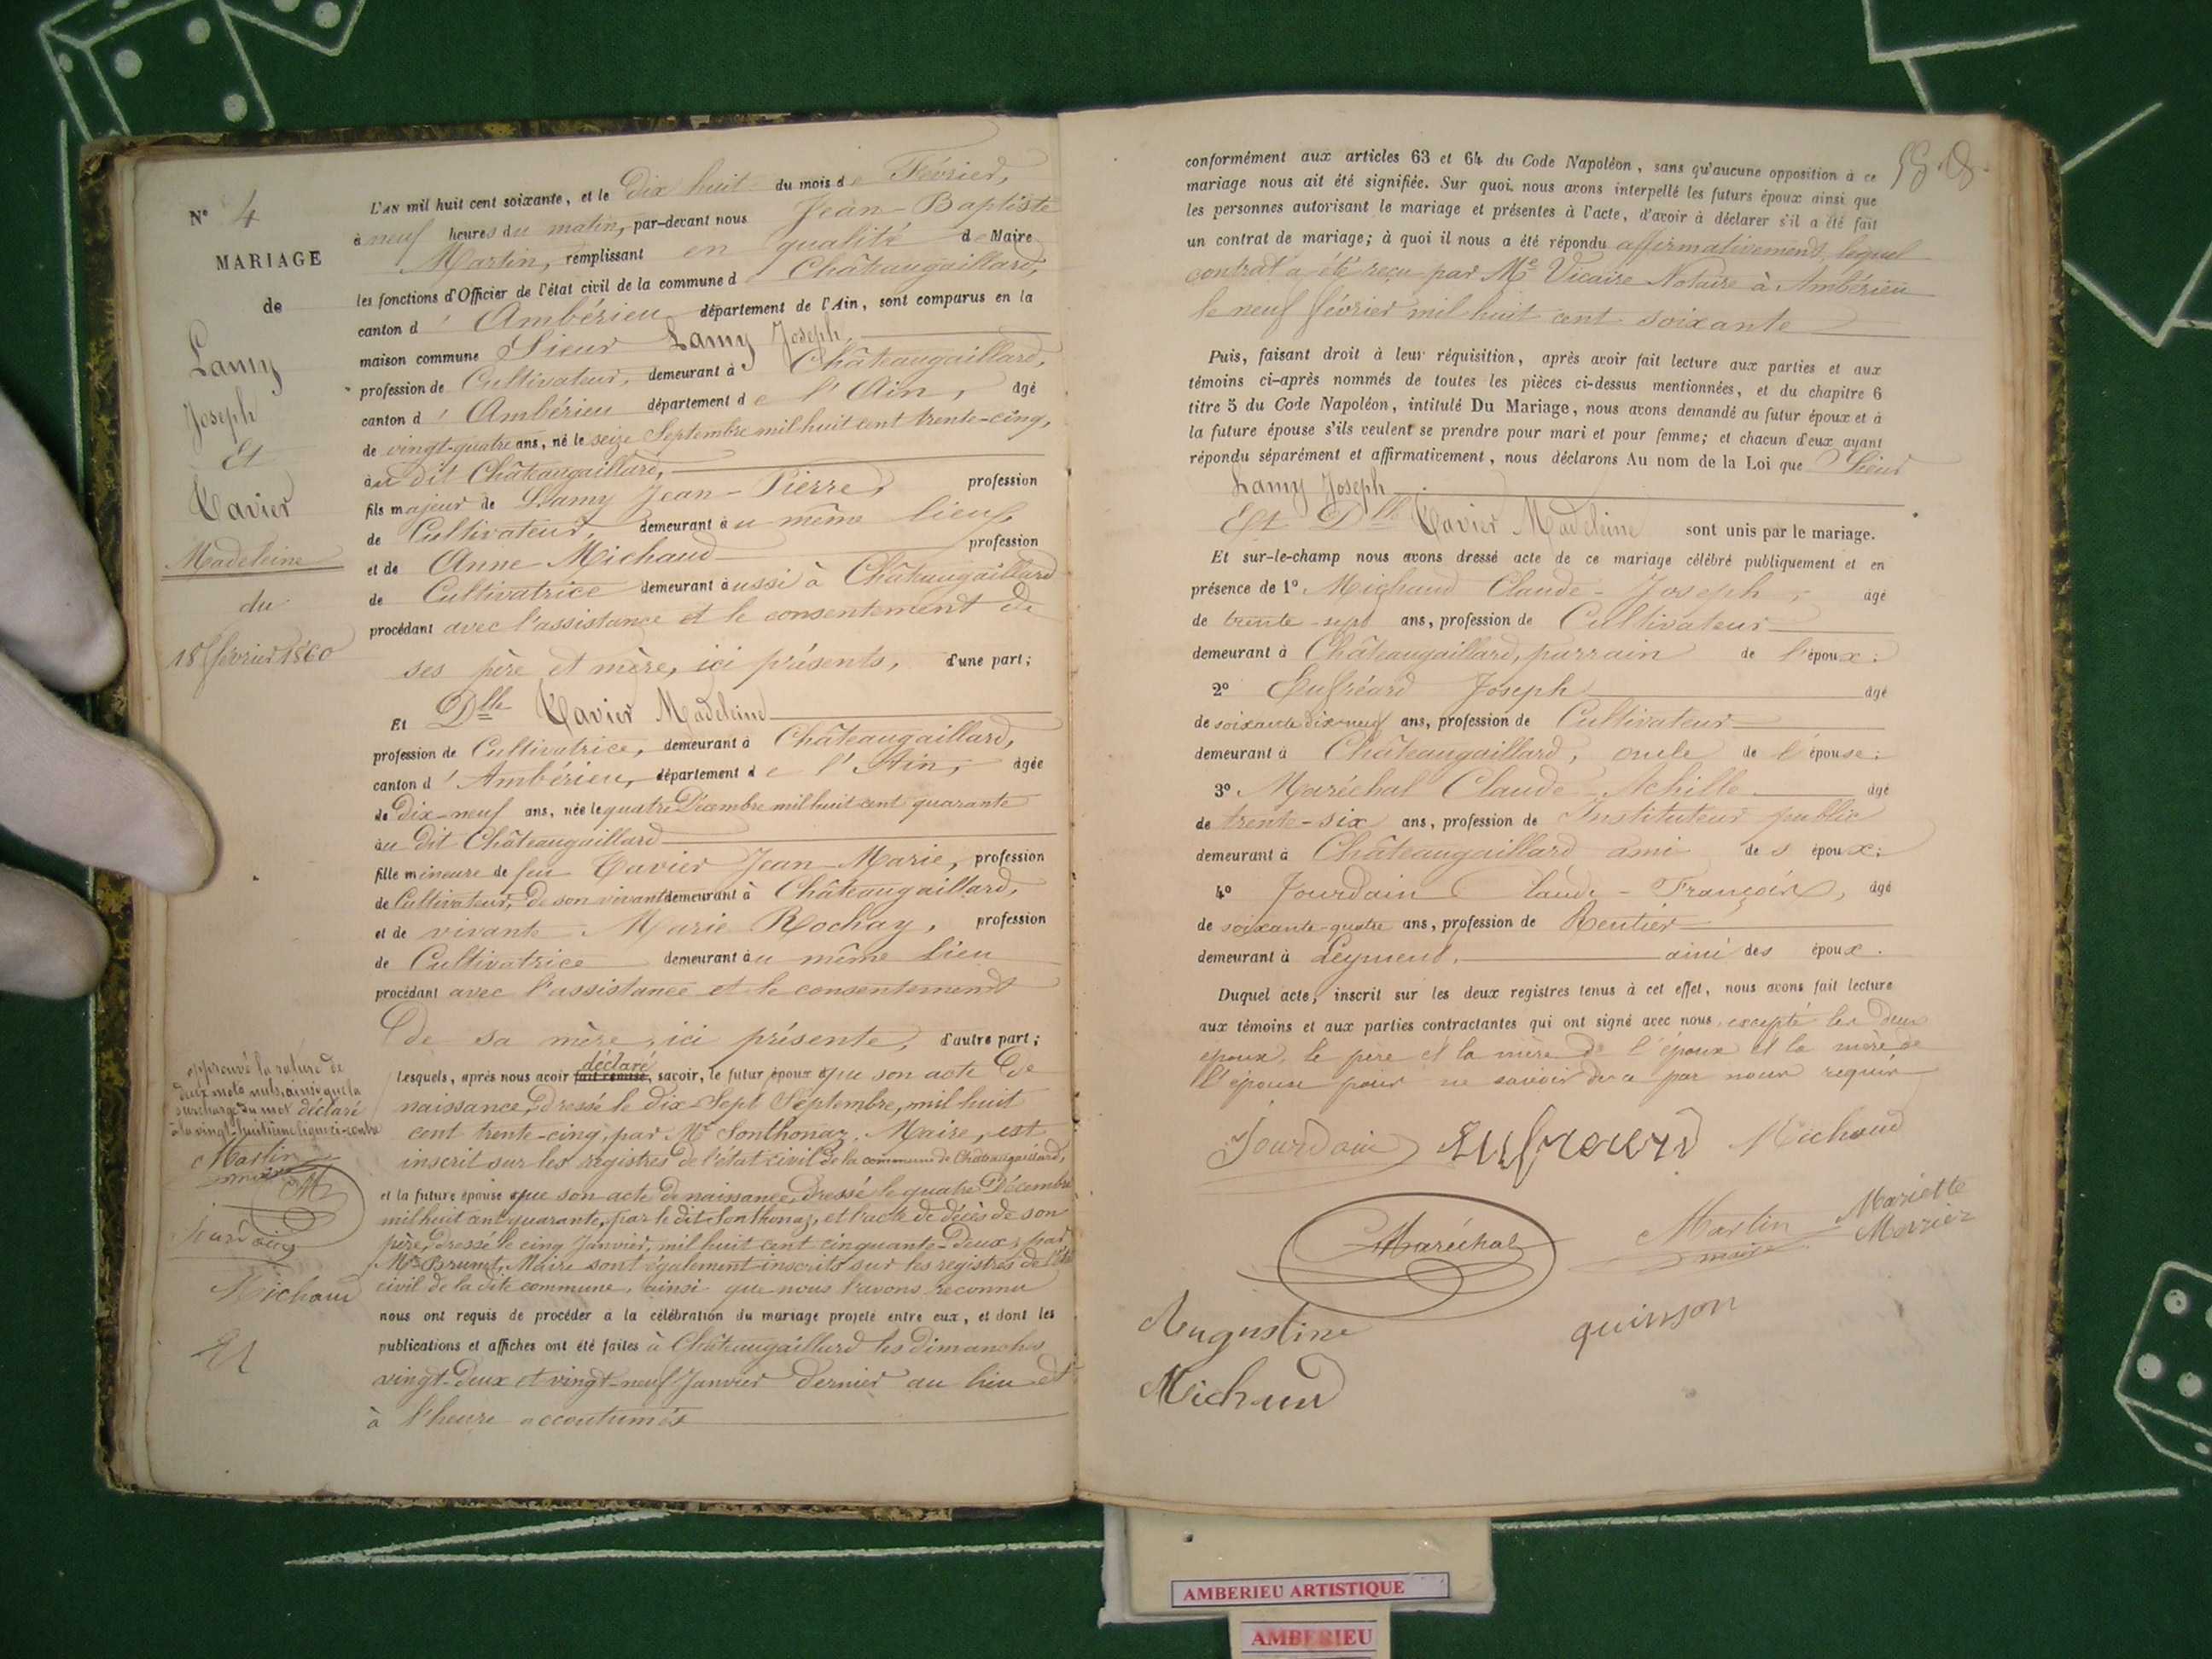 N° 4
MARIAGE
de
Lamy
Joseph
Et
Cavier
Madeleine
du
18 février 1860
approuvé la rature de
deux mots nuls, ainsi que la
surcharge du mot déclaré
à la vingt-huitième ligne ci-contre
Martin
maire
Jourdain
Michaud
L'AN mil huit cent soixante, et le Dix huit du mois de Février,
à neuf heures du matin, par-devant nous Jean-Baptiste
Martin, remplissant en qualité de Maire
les fonctions d'Officier de l'état civil de la commune d Châteaugaillard,
canton d'Ambérieu département de l'Ain, sont comparus en la
maison commune Sieur Lamy Joseph,
profession de Cultivateur, demeurant à Châteaugaillard,
canton d'Ambérieu département de l'Ain, âgé
de vingt-quatre ans, né le seize Septembre mil huit cent trente-cinq,
au dit Châteaugaillard,
fils majeur de Lamy Jean-Pierre, profession
de Cultivateur, demeurant au même lieu,
et de Anne Michaud profession
de Cultivatrice demeurant aussi à Châteaugaillard
procédant avec l'assistance et le consentement de
ses père et mère, ici présents, d'une part;
Et Dlle Cavier Madeleine
profession de Cultivatrice, demeurant à Châteaugaillard,
canton d'Ambérieu, département de l'Ain, âgée
de Dix-neuf ans, née le quatre Décembre mil huit cent quarante
au dit Châteaugaillard
fille mineure de feu Cavier Jean-Marie, profession
de Cultivateur, de son vivant demeurant à Châteaugaillard,
et de vivante Marie Rochay, profession
de Cultivatrice demeurant au même lieu
procédant avec l'assistance et le consentement
de sa mère, ici présente, d'autre part;
déclaré
Lesquels, après nous avoir fait remise, savoir, le futur époux que son acte de
naissance, dressé le dix-sept Septembre, mil huit
cent trente-cinq, par Mr Sonthonaz, Maire, est
inscrit sur les registres de l'état civil de la commune de Châteaugaillard,
et la future épouse que son acte de naissance, dressé le quatre Décembre
mil huit cent quarante, par le dit Sonthonaz, et l'acte de décès de son
père, dressé le cinq Janvier, mil huit cent cinquante-deux, par
Mr Brunet, Maire sont également inscrits sur les registres de l'état
civil de la dite commune, ainsi que nous l'avons reconnu
nous ont requis de procéder à la célébration du mariage projeté entre eux, et dont les
publications et affiches ont été faites à Châteaugaillard les Dimanches
vingt-deux et vingt-neuf Janvier dernier au lieu et
à l'heure accoutumés
conformément aux articles 63 et 64 du Code Napoléon, sans qu'aucune opposition à ce
mariage nous ait été signifiée. Sur quoi, nous avons interpellé les futurs époux ainsi que
les personnes autorisant le mariage et présentes à l'acte, d'avoir à déclarer s'il a été fait
un contrat de mariage; à quoi il nous a été répondu affirmativement, lequel
contrat a été reçu par Me Vicaire Notaire à Ambérieu
le neuf février mil huit cent soixante
Puis, faisant droit à leur réquisition, après avoir fait lecture aux parties et aux
témoins ci-après nommés de toutes les pièces ci-dessus mentionnées, et du chapitre 6
titre 5 du Code Napoléon, intitulé Du Mariage, nous avons demandé au futur époux et à
la future épouse s'ils veulent se prendre pour mari et pour femme; et chacun d'eux ayant
répondu séparément et affirmativement, nous déclarons Au nom de la Loi que Sieur
Lamy Joseph
Et Dlle Cavier Madeleine sont unis par le mariage.
Et sur-le-champ nous avons dressé acte de ce mariage célébré publiquement et en
présence de 1° Michaud Claude-Joseph, âgé
de trente-sept ans, profession de Cultivateur
demeurant à Châteaugaillard, parrain de l'époux;
2° Eufréard Joseph âgé
de soixante dix-neuf ans, profession de Cultivateur
demeurant à Châteaugaillard, oncle de l'épouse;
3° Maréchal Claude Achille âgé
de trente-six ans, profession de Instituteur public
demeurant à Châteaugaillard ami des époux;
4° Jourdain Claude-François, âgé
de soixante-quatre ans, profession de Rentier
demeurant à Leyment, ami des époux.
Duquel acte, inscrit sur les deux registres tenus à cet effet, nous avons fait lecture
aux témoins et aux parties contractantes qui ont signé avec nous, excepté les deux
époux, le père et la mère de l'époux et la mère de
l'épouse pour ne savoir de ce par nous requis
Jourdain Eufreard Michaud
Maréchal Martin maire Mariette
Augustine Michaud quinson
AMBERIEU ARTISTIQUE
AMBERIEU